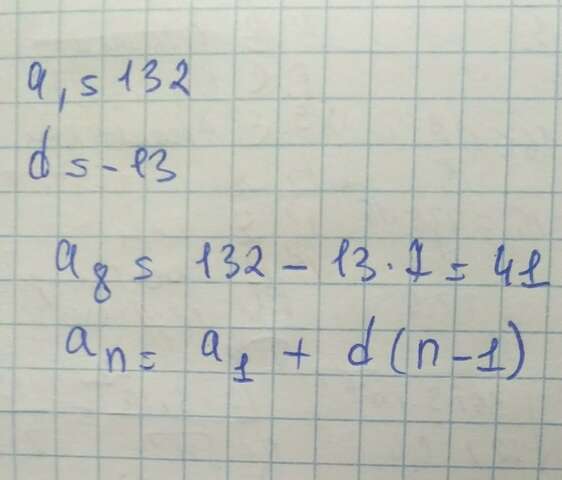 a₁ = 132
d = -13
a₈ = 132 - 13·7 = 41
aₙ = a₁ + d(n-1)